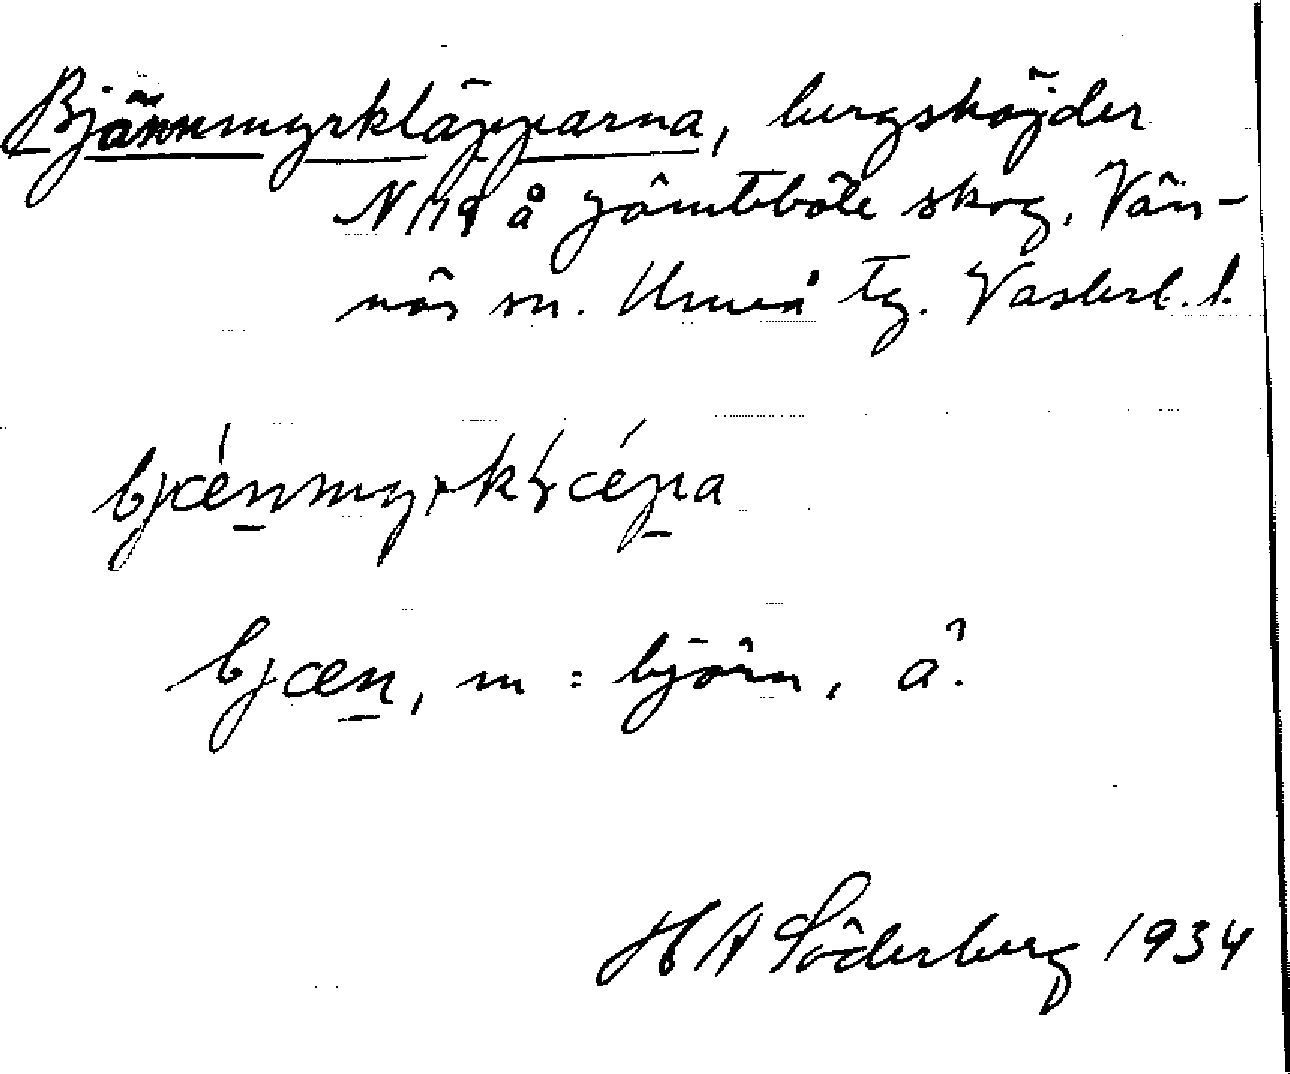 Bjännmyrkläpparna, bergshöjder
N 119 å Jämtböle skog, Vän-
näs sn. Umeå tg. Västerb. l.
bjœ́nmyrkḷœ́pa
bjœn, m = björn, a².
H A Söderberg 1934